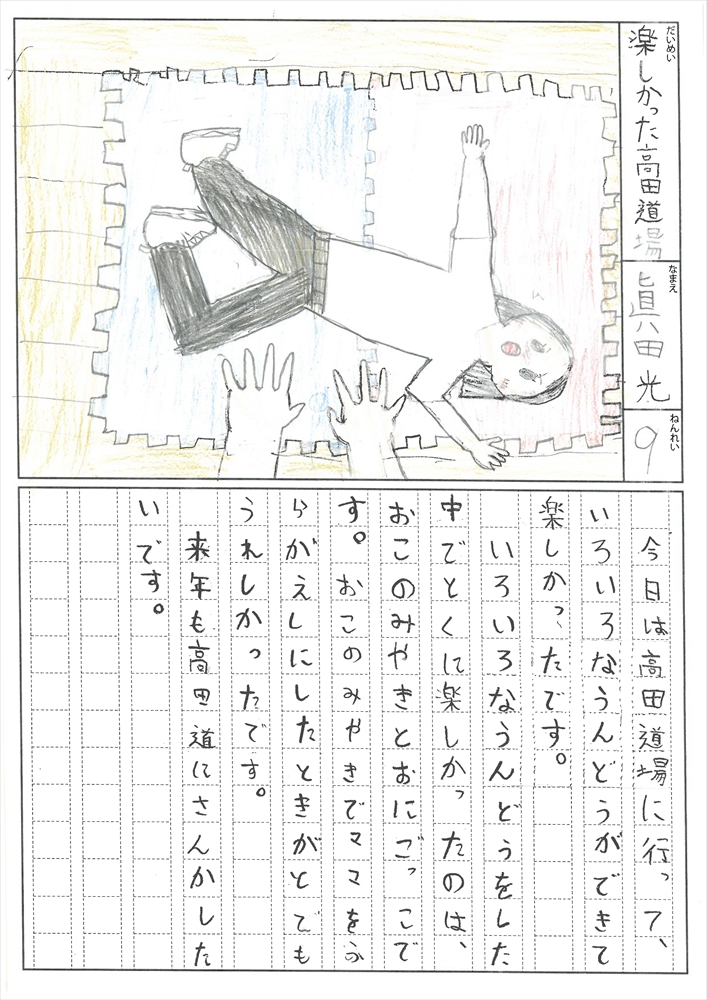 だいめい
楽しかった高田道場
なまえ
眞八田 光
ねんれい
9
今日は高田道場に行って、
いろいろなうんどうができて
楽しかったです。
いろいろなうんどうをした
中でとくに楽しかったのは、
おこのみやきとおにごっこで
す。おこのみやきでママをふ
らがえしにしたときがとても
うれしかったです。
来年も高田道にさんかした
いです。